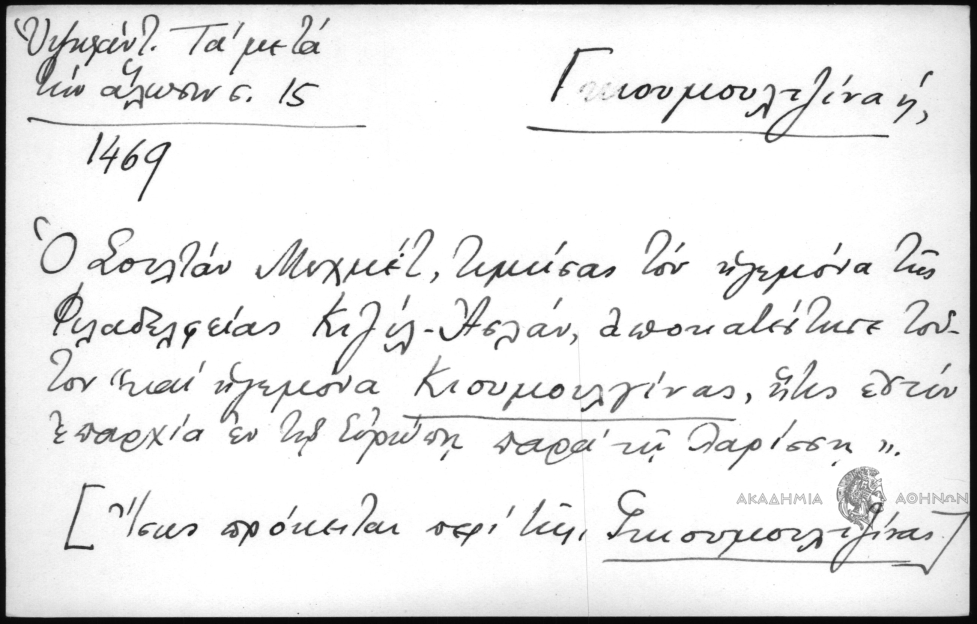 Ὑψηλάντ. Τά μετά
τήν ἅλωσιν σ. 15
Γκιουμουλτζίνα ἡ,
1469
Ὁ Σουλτάν Μεχμέτ, τιμήσας τόν ἡγεμόνα τῆς
Φιλαδελφείας Κιζίλ-Ἀσλάν, ἀποκατέστησε τοῦ-
τον "καί ἡγεμόνα Κιουμουλγίνας, ἥτις ἐστίν
ἐπαρχία ἐν τῇ Εὐρώπῃ παρά τῇ Λαρίσσῃ".
[Ἴσως πρόκειται περί τῆς Γκιουμουλτζίνας]
ΑΚΑΔΗΜΙΑ ΑΘΗΝΩΝ